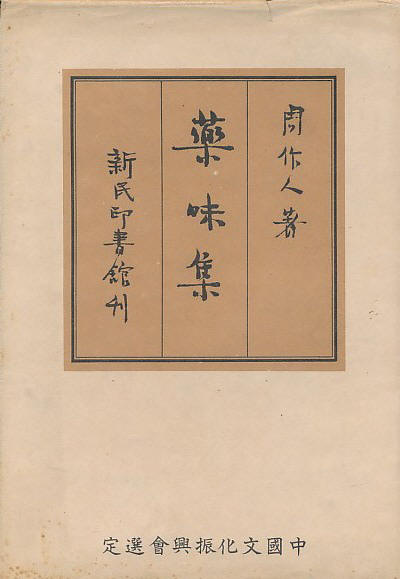 周作人著
藥味集
新民印書館刊
中國文化振興會選定